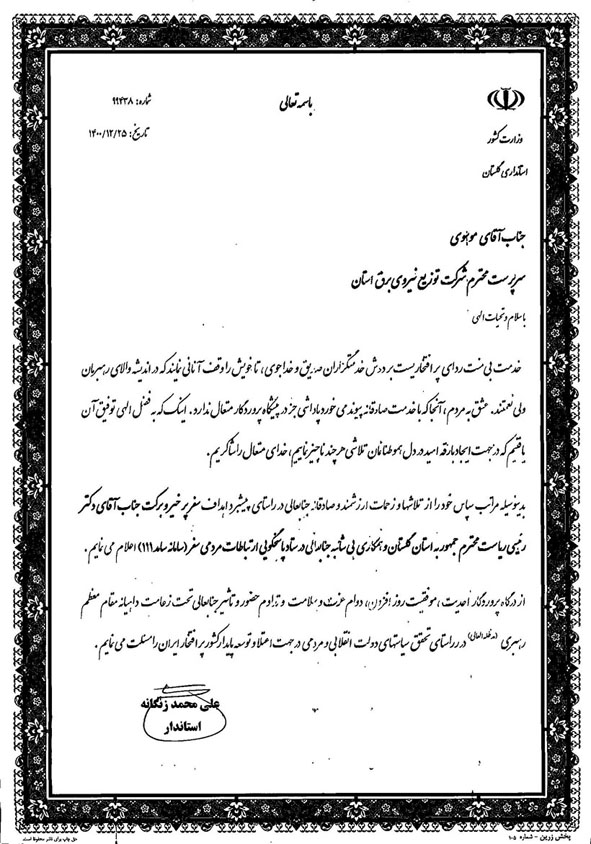 باسمه تعالی
شماره: ۹۹۴۳۸
تاریخ: ۱۴۰۰/۱۲/۲۵
وزارت کشور
استانداری گلستان
جناب آقای موسوی
سرپرست محترم شرکت توزیع نیروی برق استان
با سلام و تحیات الهی
خدمت بی منت ردای پر افتخاریست بر دوش خدمتگزاران صدیق و خداجوی، تا خویش را وقف آنانی نمایند که در اندیشه والای رهبرمان
ولی نعمتند. عشق به مردم، آنجا که با خدمت صادقانه پیوند می خورد پاداشی جز در پیشگاه پروردگار متعال ندارد. اینک که به فضل الهی توفیق آن
یافتیم که در جهت ایجاد بارقه امید در دل هموطنانمان تلاشی هر چند ناچیز نماییم، خدای متعال را شاکریم.
بدینوسیله مراتب سپاس خود را از تلاشها و زحمات ارزشمند و صادقانه جنابعالی در راستای پیشبرد اهداف سفر پر خیر و برکت جناب آقای دکتر
رئیسی ریاست محترم جمهور به استان گلستان و همکاری بی شائبه جنابعالی در ستاد پاسخگویی ارتباطات مردمی سفر (سامانه سامد ۱۱۱) اعلام می نمایم.
از درگاه پروردگار احدیت، موفقیت روز افزون، دوام عزت و سلامت و تداوم حضور و تاثیر جنابعالی تحت زعامت داهیانه مقام معظم
رهبری (مدظله العالی) در راستای تحقق سیاستهای دولت انقلابی و مردمی در جهت اعتلا و توسعه پایدار کشور پر افتخار ایران را مسئلت می نمایم.
علی محمد زنگانه
استاندار
پخش زرین - شماره ۱۰۵
حق چاپ برای ناشر محفوظ است